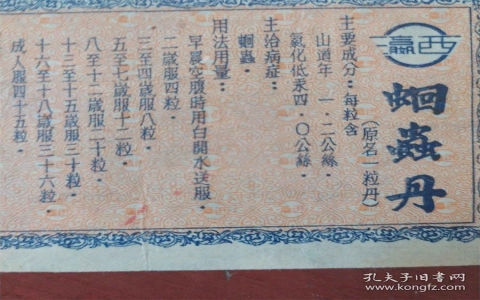 西瀛
蛔蟲丹
（原名一粒丹）
主要成分：每粒含
山道年　一．二公絲．
氯化低汞四．〇公絲．
主治病症：
蛔蟲．
用法用量：
早晨空腹時用白開水送服．
二歲服四粒．
三至四歲服八粒．
五至七歲服十二粒．
八至十二歲服二十粒．
十三至十五歲服三十粒．
十六至十八歲服三十六粒．
成人服四十五粒．
孔夫子旧书网
www.kongfz.com